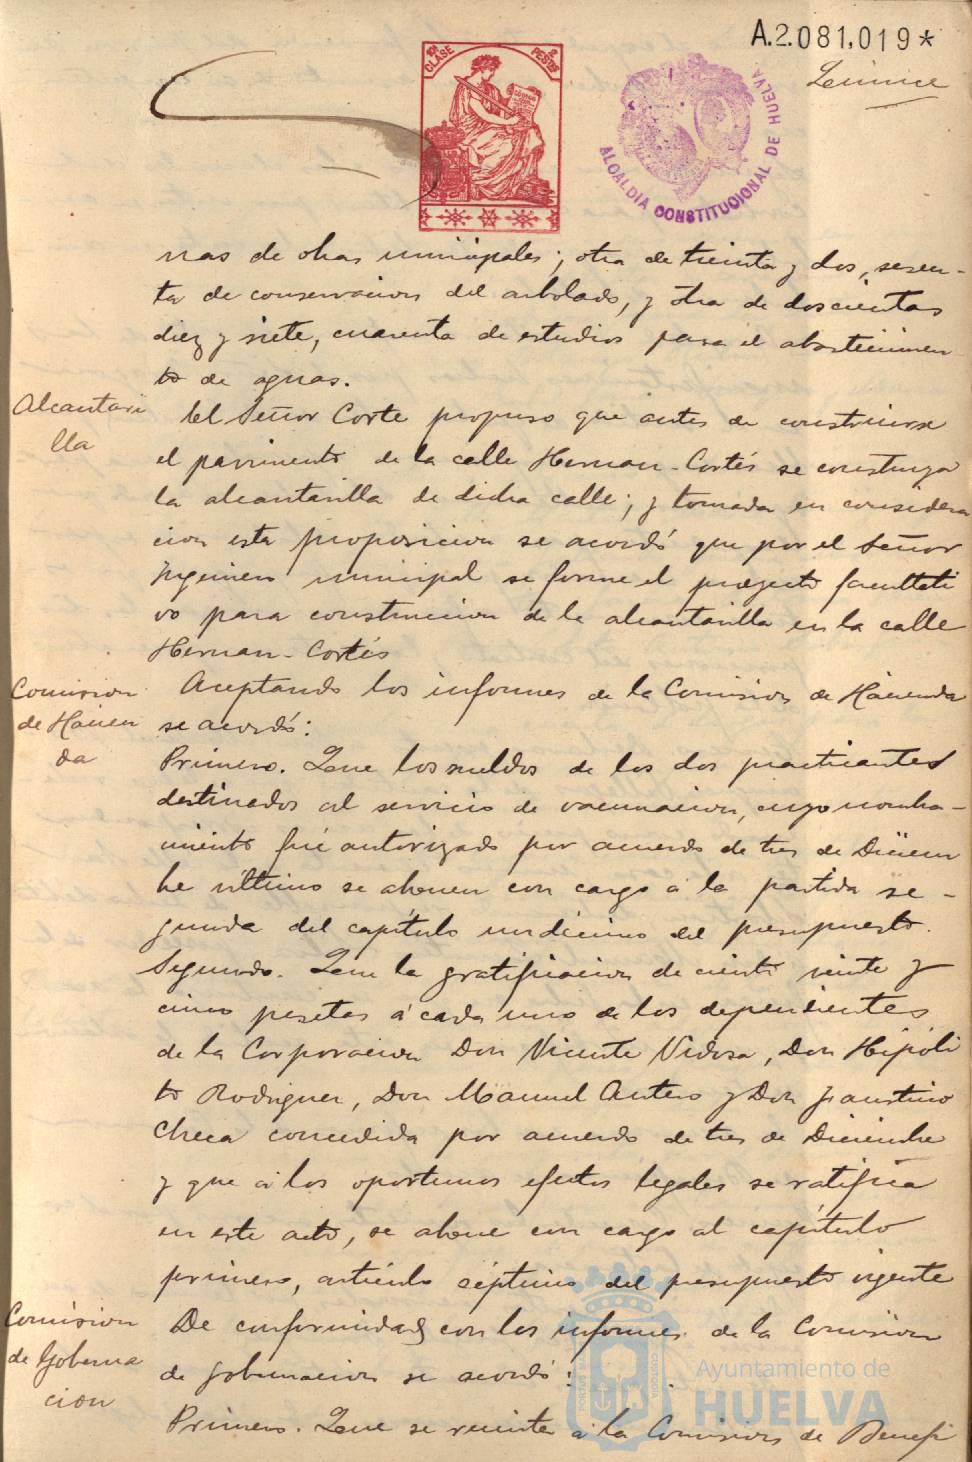 A.2.081,019*
Quince
10ª CLASE
2 PESETAS
ALCALDIA CONSTITUCIONAL DE HUELVA
nas de obras municipales; otra de treinta y dos, sesen-
ta de conservacion del arbolado, y otra de doscientas
diez y siete, cuarenta de estudios para el abastecimien-
to de aguas.
Alcantari
lla
El Señor Corte propuso que antes de construirse
el pavimento de la calle Hernan-Cortés se construya
la alcantarilla de dicha calle; y tomada en considera
cion esta proposicion se acordó que por el Señor
Ingeniero municipal se forme el proyecto facultati
vo para construccion de la alcantarilla en la calle
Hernan-Cortés
Comision
de Hacien
da
Aceptando los informes de la Comision de Hacienda
se acordó:
Primero. Que los sueldos de los dos practicantes
destinados al servicio de vacunacion, cuyo nombra-
miento fué autorizado por acuerdo de tres de Diciem
bre último se abonen con cargo á la partida se-
gunda del capítulo undécimo del presupuesto.
Segundo. Que la gratificacion de ciento veinte y
cinco pesetas á cada uno de los dependientes
de la Corporacion Don Vicente Vidosa, Don Hipóli
to Rodriguez, Don Manuel Antero y Don Faustino
Checa concedida por acuerdo de tres de Diciembre
y que á los oportunos efectos legales se ratifica
en este acto, se abone con cargo al capítulo
primero, artículo séptimo del presupuesto vigente
Comision
de Goberna
cion
De conformidad con los informes de la Comision
de gobernacion se acordó:
Primero. Que se remita á la Comision de Benefi
Ayuntamiento de
HUELVA